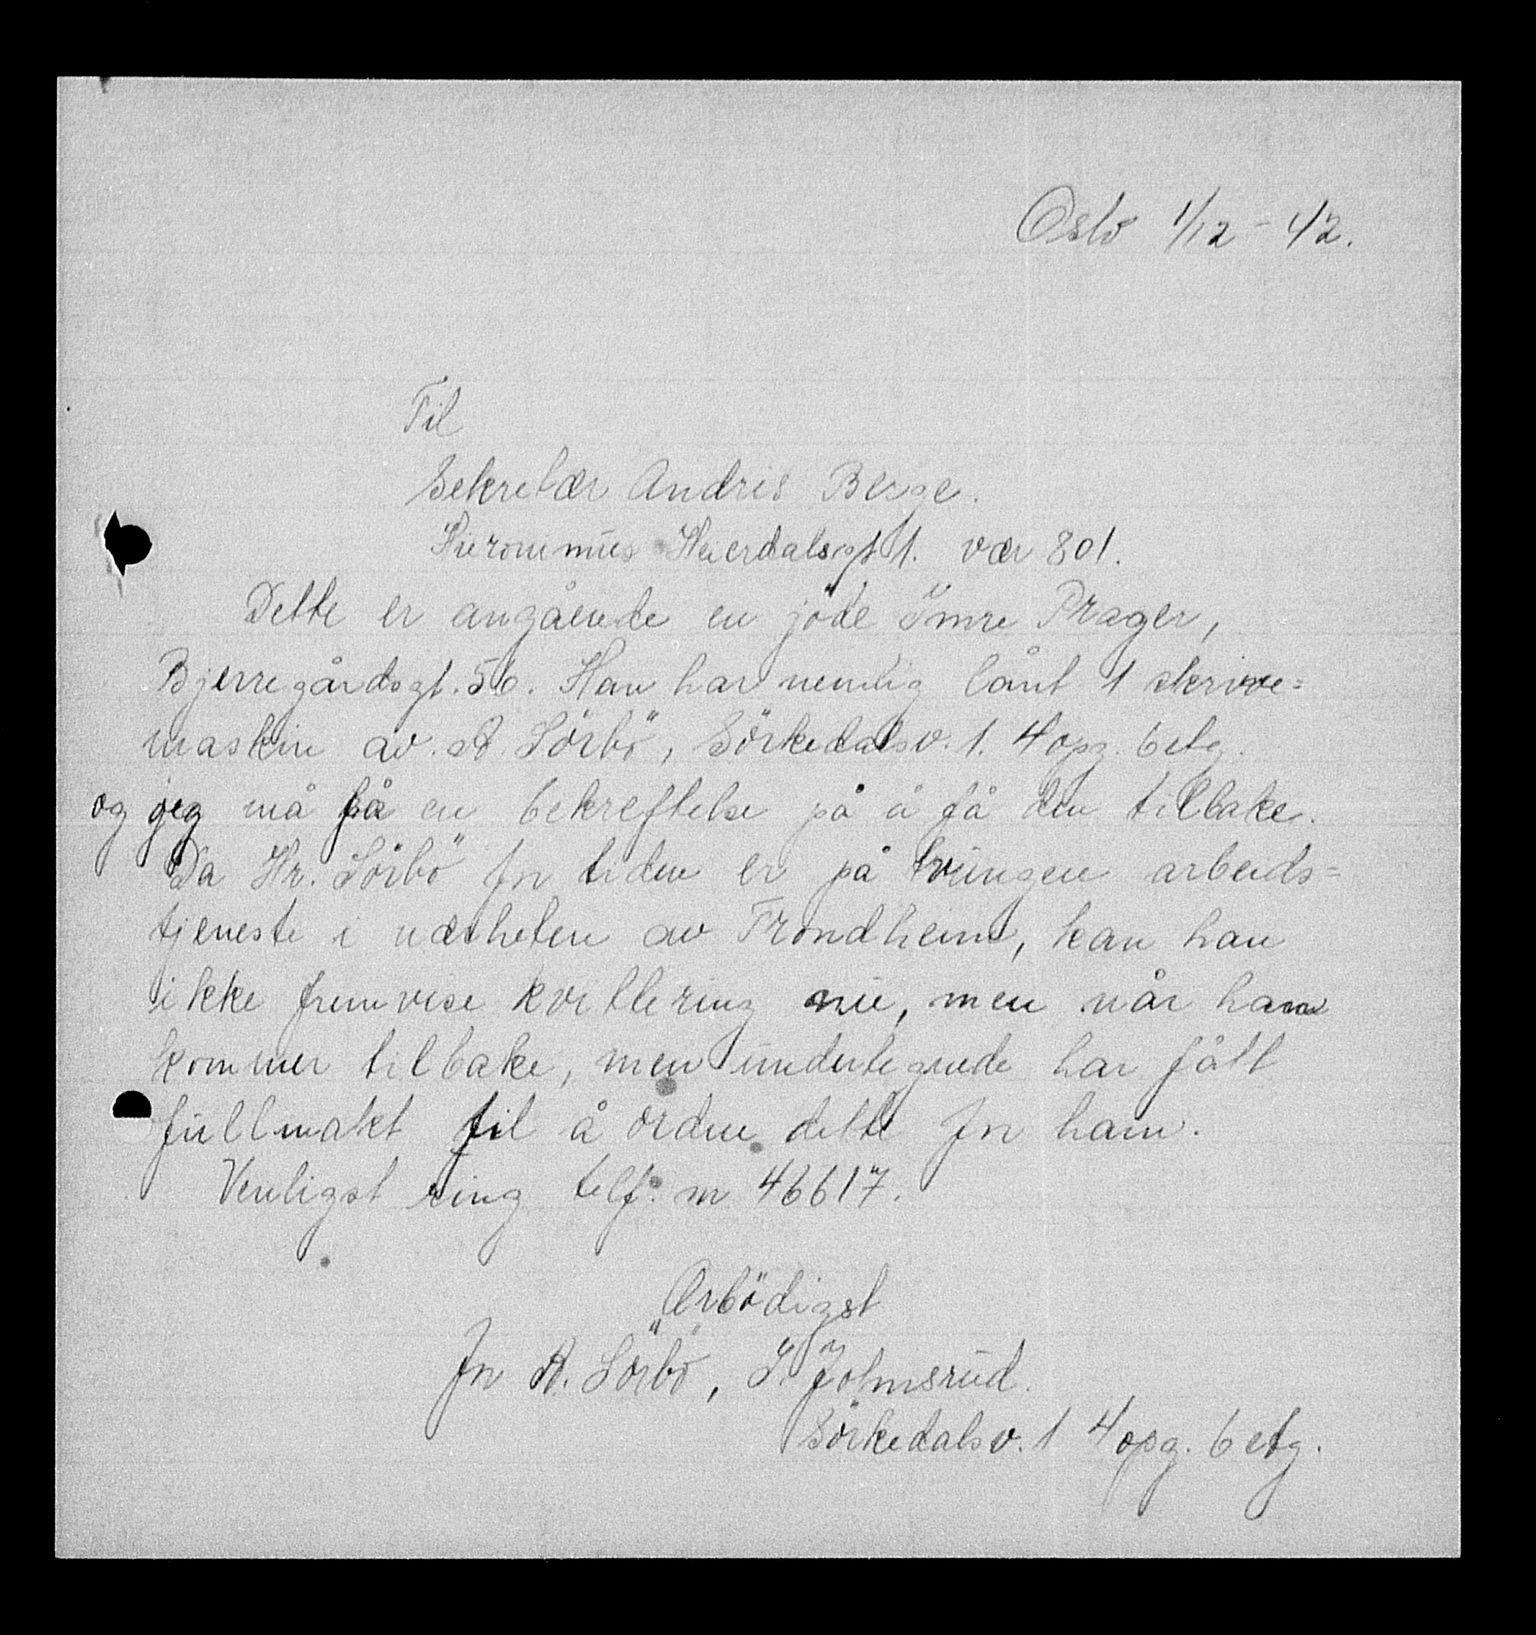 Oslo 1/12 - 42.
Til
Sekretær Andris Berge.
Hieronimus Heierdalsgt 1. vær 801.
Dette er angående en jöde Imre Prager,
Bjerregårdsgt. 56. Han har nemlig lånt 1 skrive=
maskin av A. Sörbö, Sörkedalsv. 1. 4 opg. 6 etg.
og jeg må få en bekreftelse på å få den tilbake.
Da Hr. Sörbö for tiden er på tvungen arbeids=
tjeneste i nærheten av Trondheim, kan han
ikke fremvise kvittering nu, men når han
kommer tilbake, men undertegnede har fått
fullmakt til å ordne dette for ham.
Venligst ring telf. nr 46617.
Ærbödigst
for A. Sörbö, I. Johnsrud.
Sörkedalsv. 1 4 opg. 6 etg.